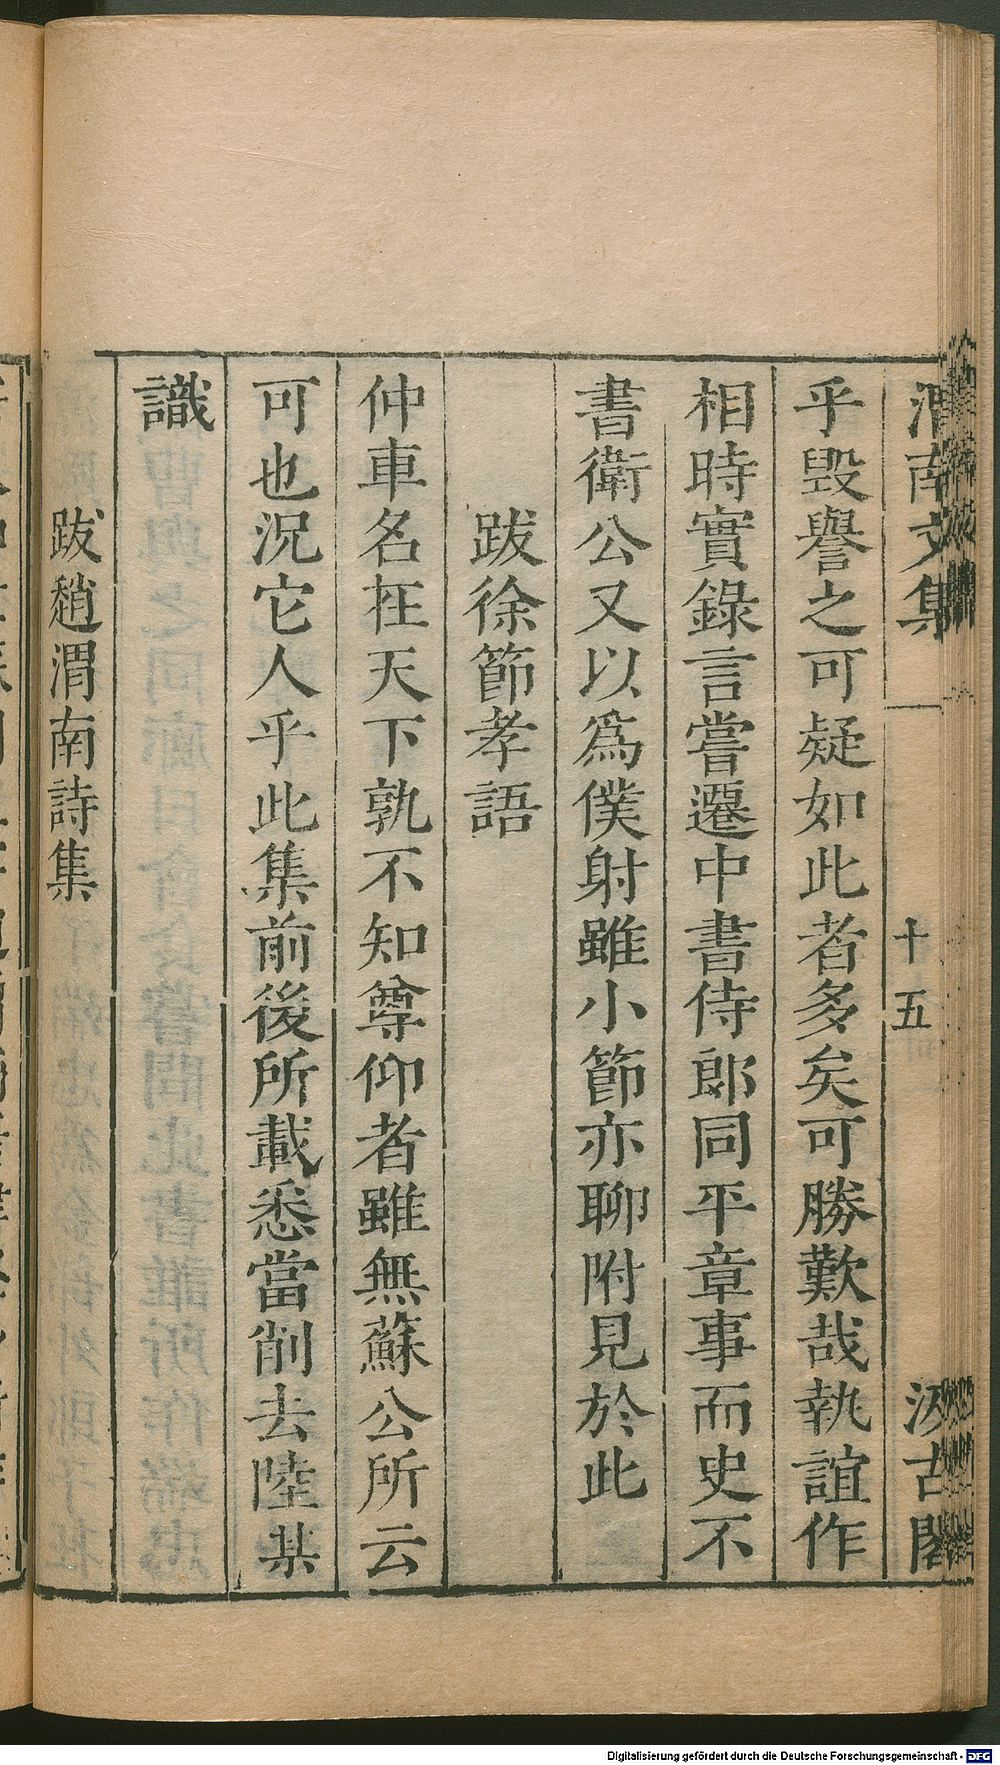 渭南文集 十五 汲古閣
乎毀譽之可疑如此者多矣可勝歎哉執誼作
相時實錄言嘗遷中書侍郎同平章事而史不
書衛公又以爲僕射雖小節亦聊附見於此
跋徐節孝語
仲車名在天下孰不知尊仰者雖無蘇公所云
可也況它人乎此集前後所載悉當削去陸某
識
跋趙渭南詩集
Digitalisierung gefördert durch die Deutsche Forschungsgemeinschaft - DFG